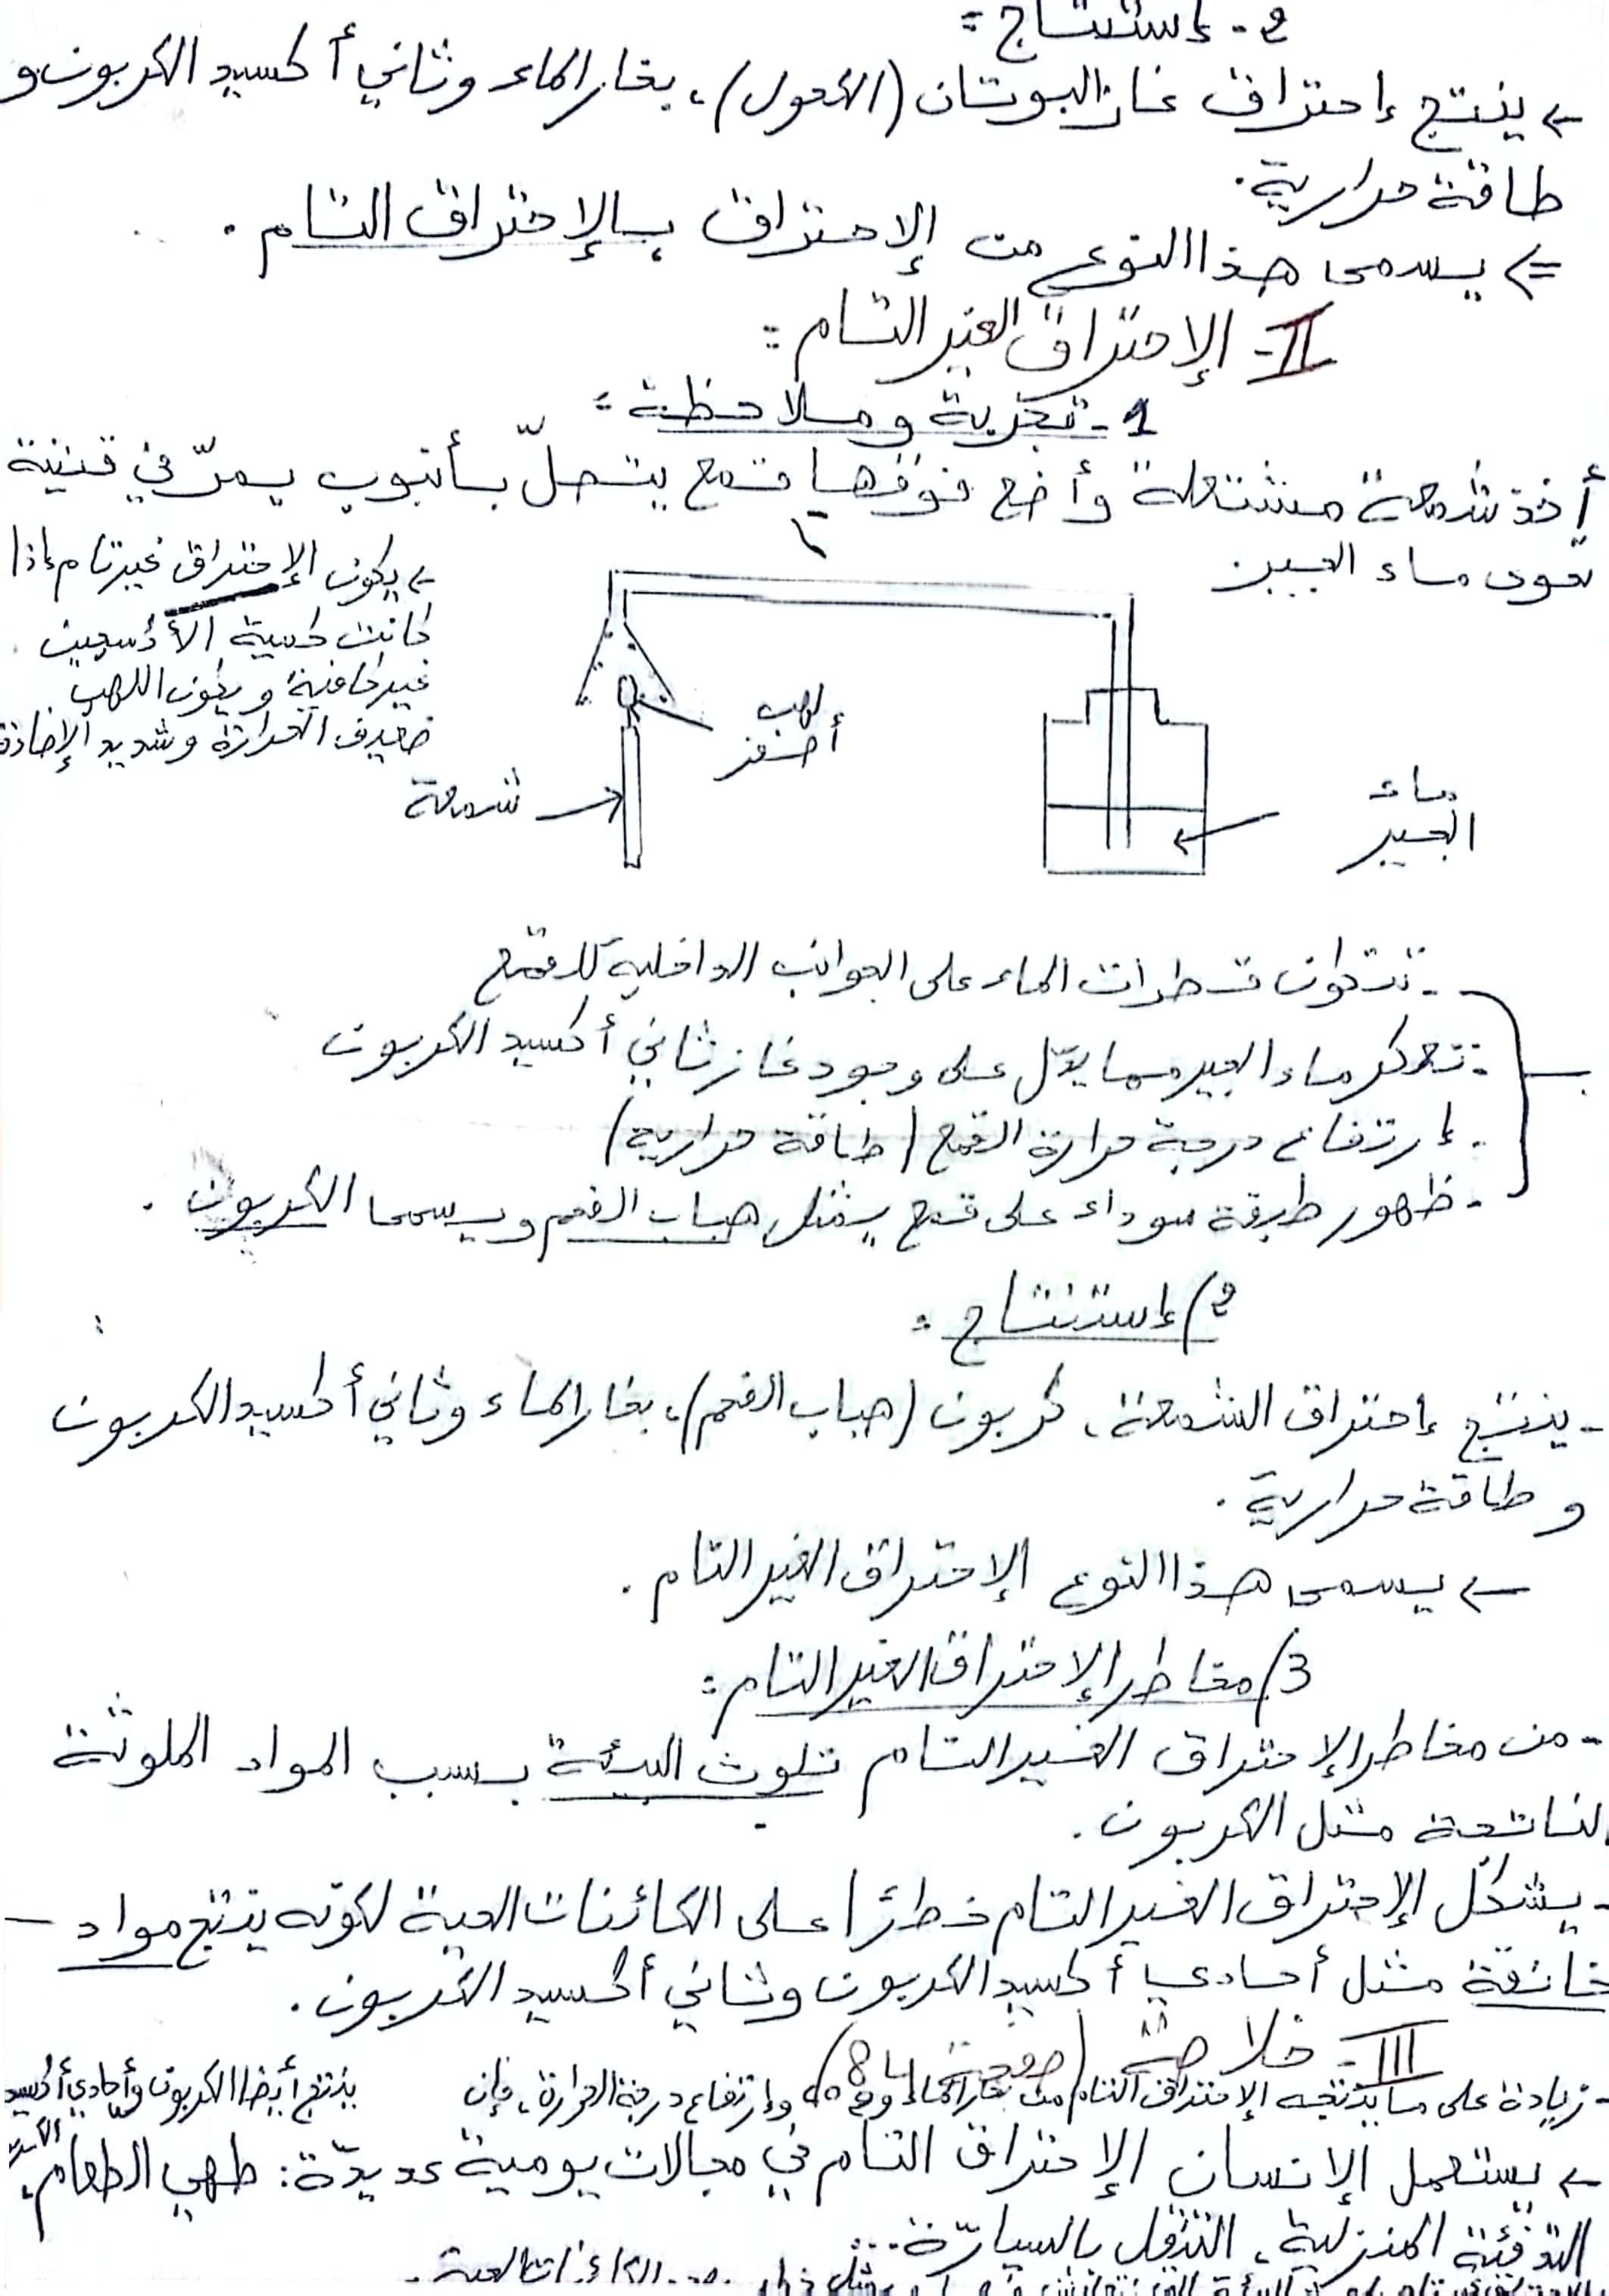 2 - إستنتاج :
← ينتج إحتراق غاز البوتان (الكحول)، بخار الماء وثاني أكسيد الكربون و
طاقة حرارية.
⇐ يسمى هذا النوع من الإحتراق بالإحتراق التام.
II - الإحتراق الغير التام :
1 - تجربة وملاحظة :
أخذ شمعة مشتعلة وأضع فوقها قمع يتصلّ بأنبوب يمرّ في قنينة
تحوي ماء الجير
← يكون الإحتراق غير تام إذا
كانت كمية الأكسجين
غير كافية و يكون اللهب
ضعيف الحرارة وشديد الإضاءة
لهب
أصفر
شمعة
ماء
الجير
- تتكون قطرات الماء على الجوانب الداخلية للقمع
- تعكر ماء الجير مما يدّل على وجود غاز ثاني أكسيد الكربون
- إرتفاع درجة حرارة القمع (طاقة حرارية)
- ظهور طبقة سوداء على قمع يمثل هباب الفحم ويسمى الكربون.
2) إستنتاج :
- ينتج إحتراق الشمعة، كربون (هباب الفحم)، بخار الماء وثاني أكسيد الكربون
و طاقة حرارية.
← يسمى هذا النوع الإحتراق الغير التام.
3) مخاطر الإحتراق الغير التام :
- من مخاطر الإحتراق الغير التام تلوث البيئة بسبب المواد الملوثة
الناتجة مثل الكربون.
- يشكّل الإحتراق الغير التام خطرًا على الكائنات الحية لكونه ينتج مواد
خانقة مثل أحادي أكسيد الكربون وثاني أكسيد الكربون.
III - خلاصة (صفحة 84)
- زيادة على ما ينتجه الإحتراق التام من بخار الماء و وإرتفاع درجة الحرارة، فإن ينتج أيضا الكربون وأحادي أكسيد
← يستعمل الإنسان الإحتراق التام في مجالات يومية عديدة: طهي الطعام،
التدفئة المنزلية، التنقل بالسيارة...
الكائنات الحية.